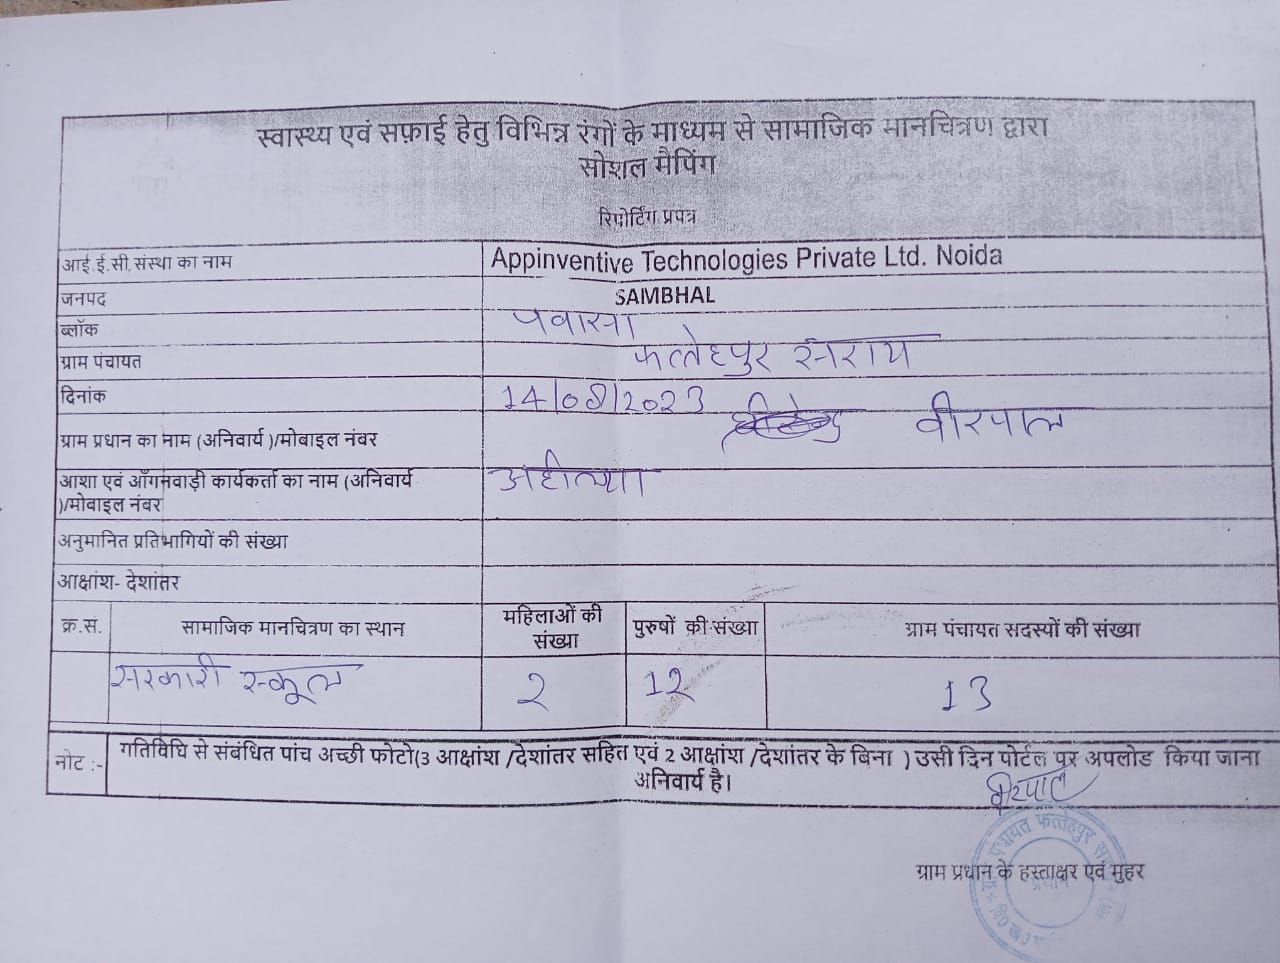 स्वास्थ्य एवं सफ़ाई हेतु विभिन्न रंगों के माध्यम से सामाजिक मानचित्रण द्वारा
सोशल मैपिंग
रिपोर्टिंग प्रपत्र
आई.ई.सी.संस्था का नाम Appinventive Technologies Private Ltd. Noida
जनपद SAMBHAL
ब्लॉक पवासा
ग्राम पंचायत फत्तेहपुर सराय
दिनांक 14/08/2023
ग्राम प्रधान का नाम (अनिवार्य )/मोबाइल नंबर वीरपाल
आशा एवं आँगनवाड़ी कार्यकर्ता का नाम (अनिवार्य
)/मोबाइल नंबर
अनुमानित प्रतिभागियों की संख्या
आक्षांश- देशांतर
क्र.सं. सामाजिक मानचित्रण का स्थान महिलाओं की संख्या पुरुषों की संख्या ग्राम पंचायत सदस्यों की संख्या
सरकारी स्कूल 2 12 13
नोट :- गतिविधि से संबंधित पांच अच्छी फोटो(3 आक्षांश /देशांतर सहित एवं 2 आक्षांश /देशांतर के बिना ) उसी दिन पोर्टल पर अपलोड किया जाना
अनिवार्य है।
वीरपाल
पंचायत फत्तेहपुर
प्रधान
ग्राम प्रधान के हस्ताक्षर एवं मुहर